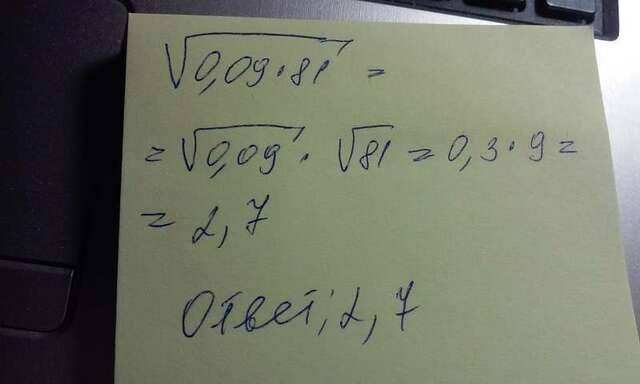 √0,09·81 =
= √0,09 · √81 = 0,3·9 =
= 2,7
Ответ: 2,7